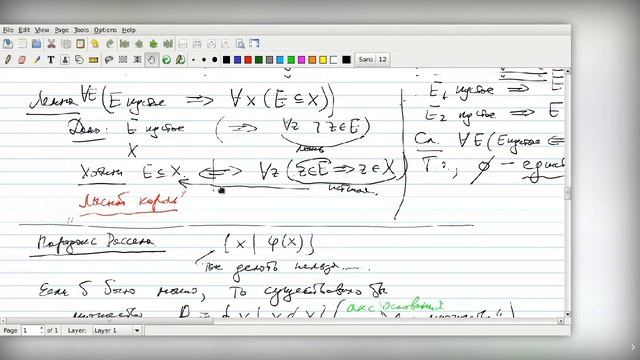 File Edit View Page Tools Options Help
Sans 12
Лемма ∀E (E пустое ⟹ ∀x (E ⊆ X))
Дано: E пустое (⟹ ∀z ¬ z∈E)
ложь
X
Хотим E ⊆ X ⟺ ∀z (z∈E ⟹ z∈X)
истина
E₁ пустое ⟹ E
E₂ пустое ⟹ E
Сл. ∀E (E пустое ⟸
Т.е., ∅ –
Парадокс Рассела {x | φ(x)}
Так делать нельзя.....
Если б было можно, то существовало бы
Page 1 of 1 Layer: Layer 1